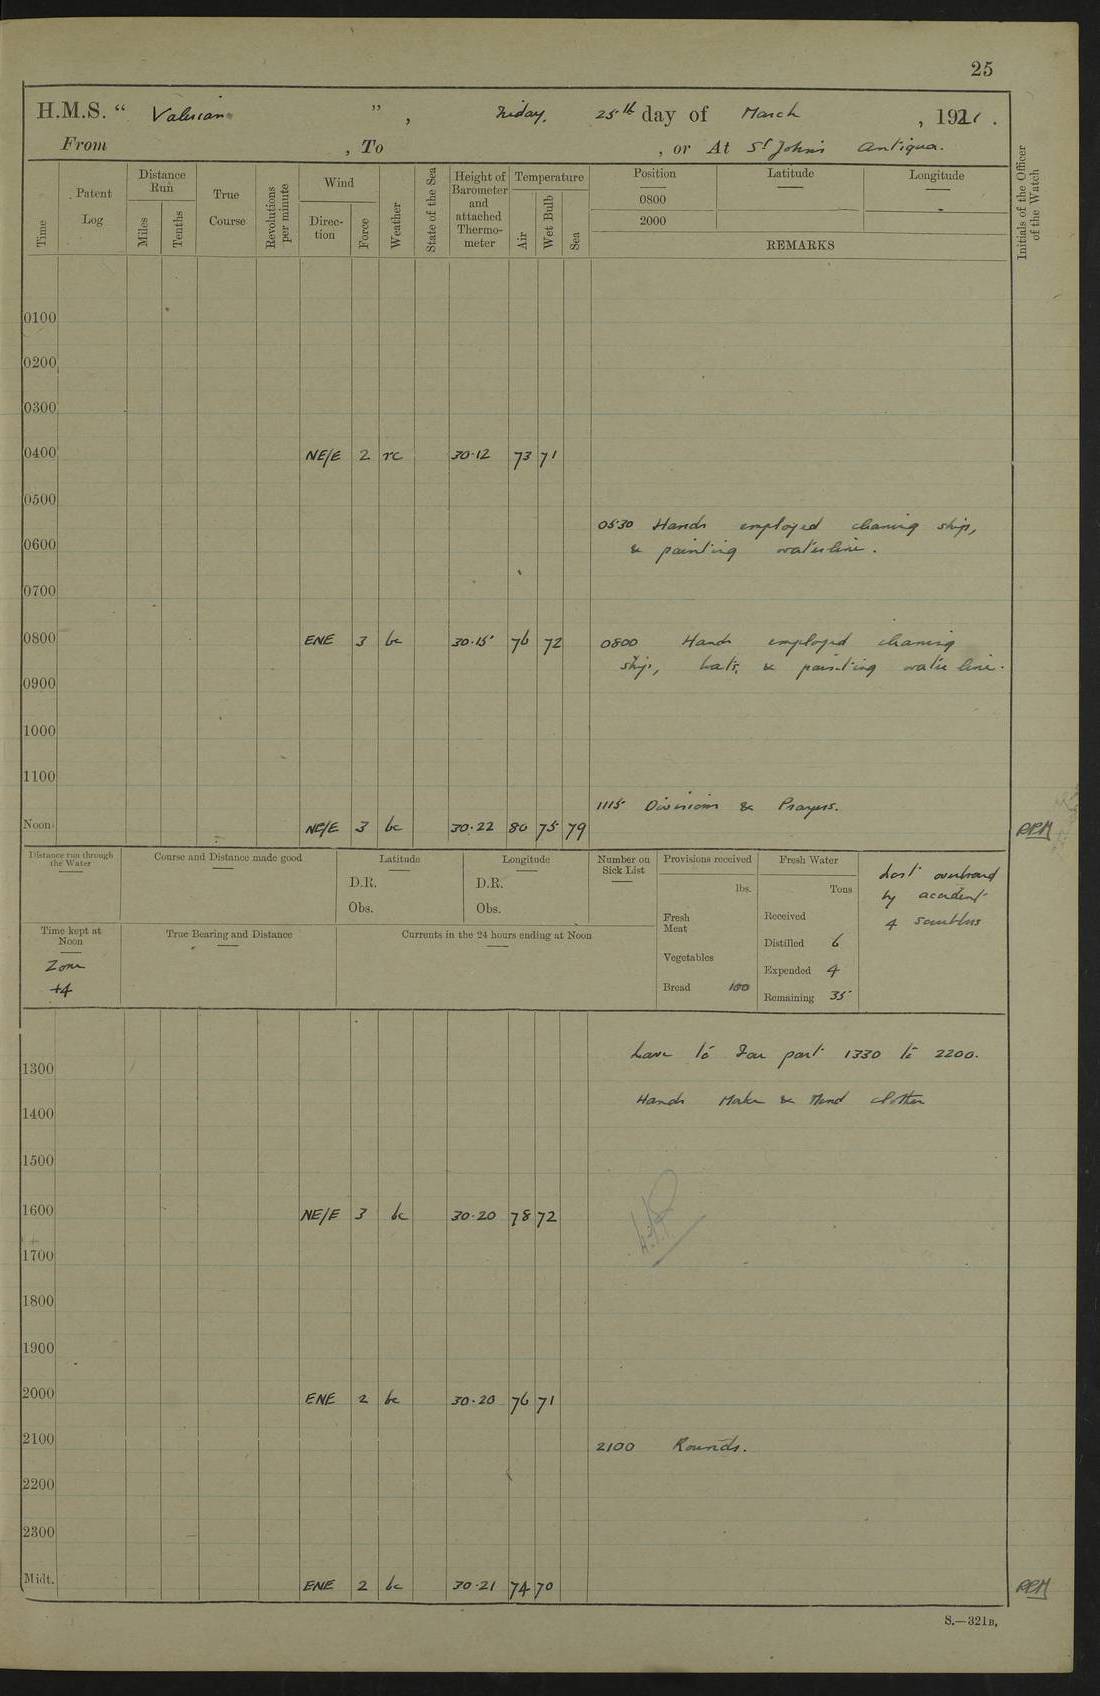 25
H.M.S. “ Valerian ” , Friday, 25th day of March , 1921 .
From , To , or At St John's Antigua.
Time
Patent Log
Distance Run
Miles
Tenths
True Course
Revolutions per minute
Wind
Direction
Force
Weather
State of the Sea
Height of Barometer and attached Thermometer
Temperature
Air
Wet Bulb
Sea
Position
0800
2000
Latitude
Longitude
REMARKS
Initials of the Officer of the Watch
0100
0200
0300
0400 NE/E 2 rc 30·12 73 71
0500
0530 Hands employed cleaning ship,
0600 & painting waterline.
0700
0800 ENE 3 bc 30·15 76 72 0800 Hands employed cleaning
ship, boats, & painting water line.
0900
1000
1100
1115 Divisions & Prayers.
Noon NE/E 3 bc 30·22 80 75 79 RPM
Distance run through the Water
Course and Distance made good
Latitude
D.R.
Obs.
Longitude
D.R.
Obs.
Number on Sick List
Provisions received
lbs.
Fresh Meat
Vegetables
Bread 100
Fresh Water
Tons
Received
Distilled 6
Expended 4
Remaining 35
Lost overboard
by accident
4 scrubbers
Time kept at Noon
Zone
+4
True Bearing and Distance
Currents in the 24 hours ending at Noon
Leave to part 1330 to 2200.
1300
Hands Make & Mend clothes
1400
1500
1600 NE/E 3 bc 30·20 78 72
1700
1800
1900
2000 ENE 2 bc 30·20 76 71
2100 2100 Rounds.
2200
2300
Midt. ENE 2 bc 30·21 74 70 RPM
S.—321B,